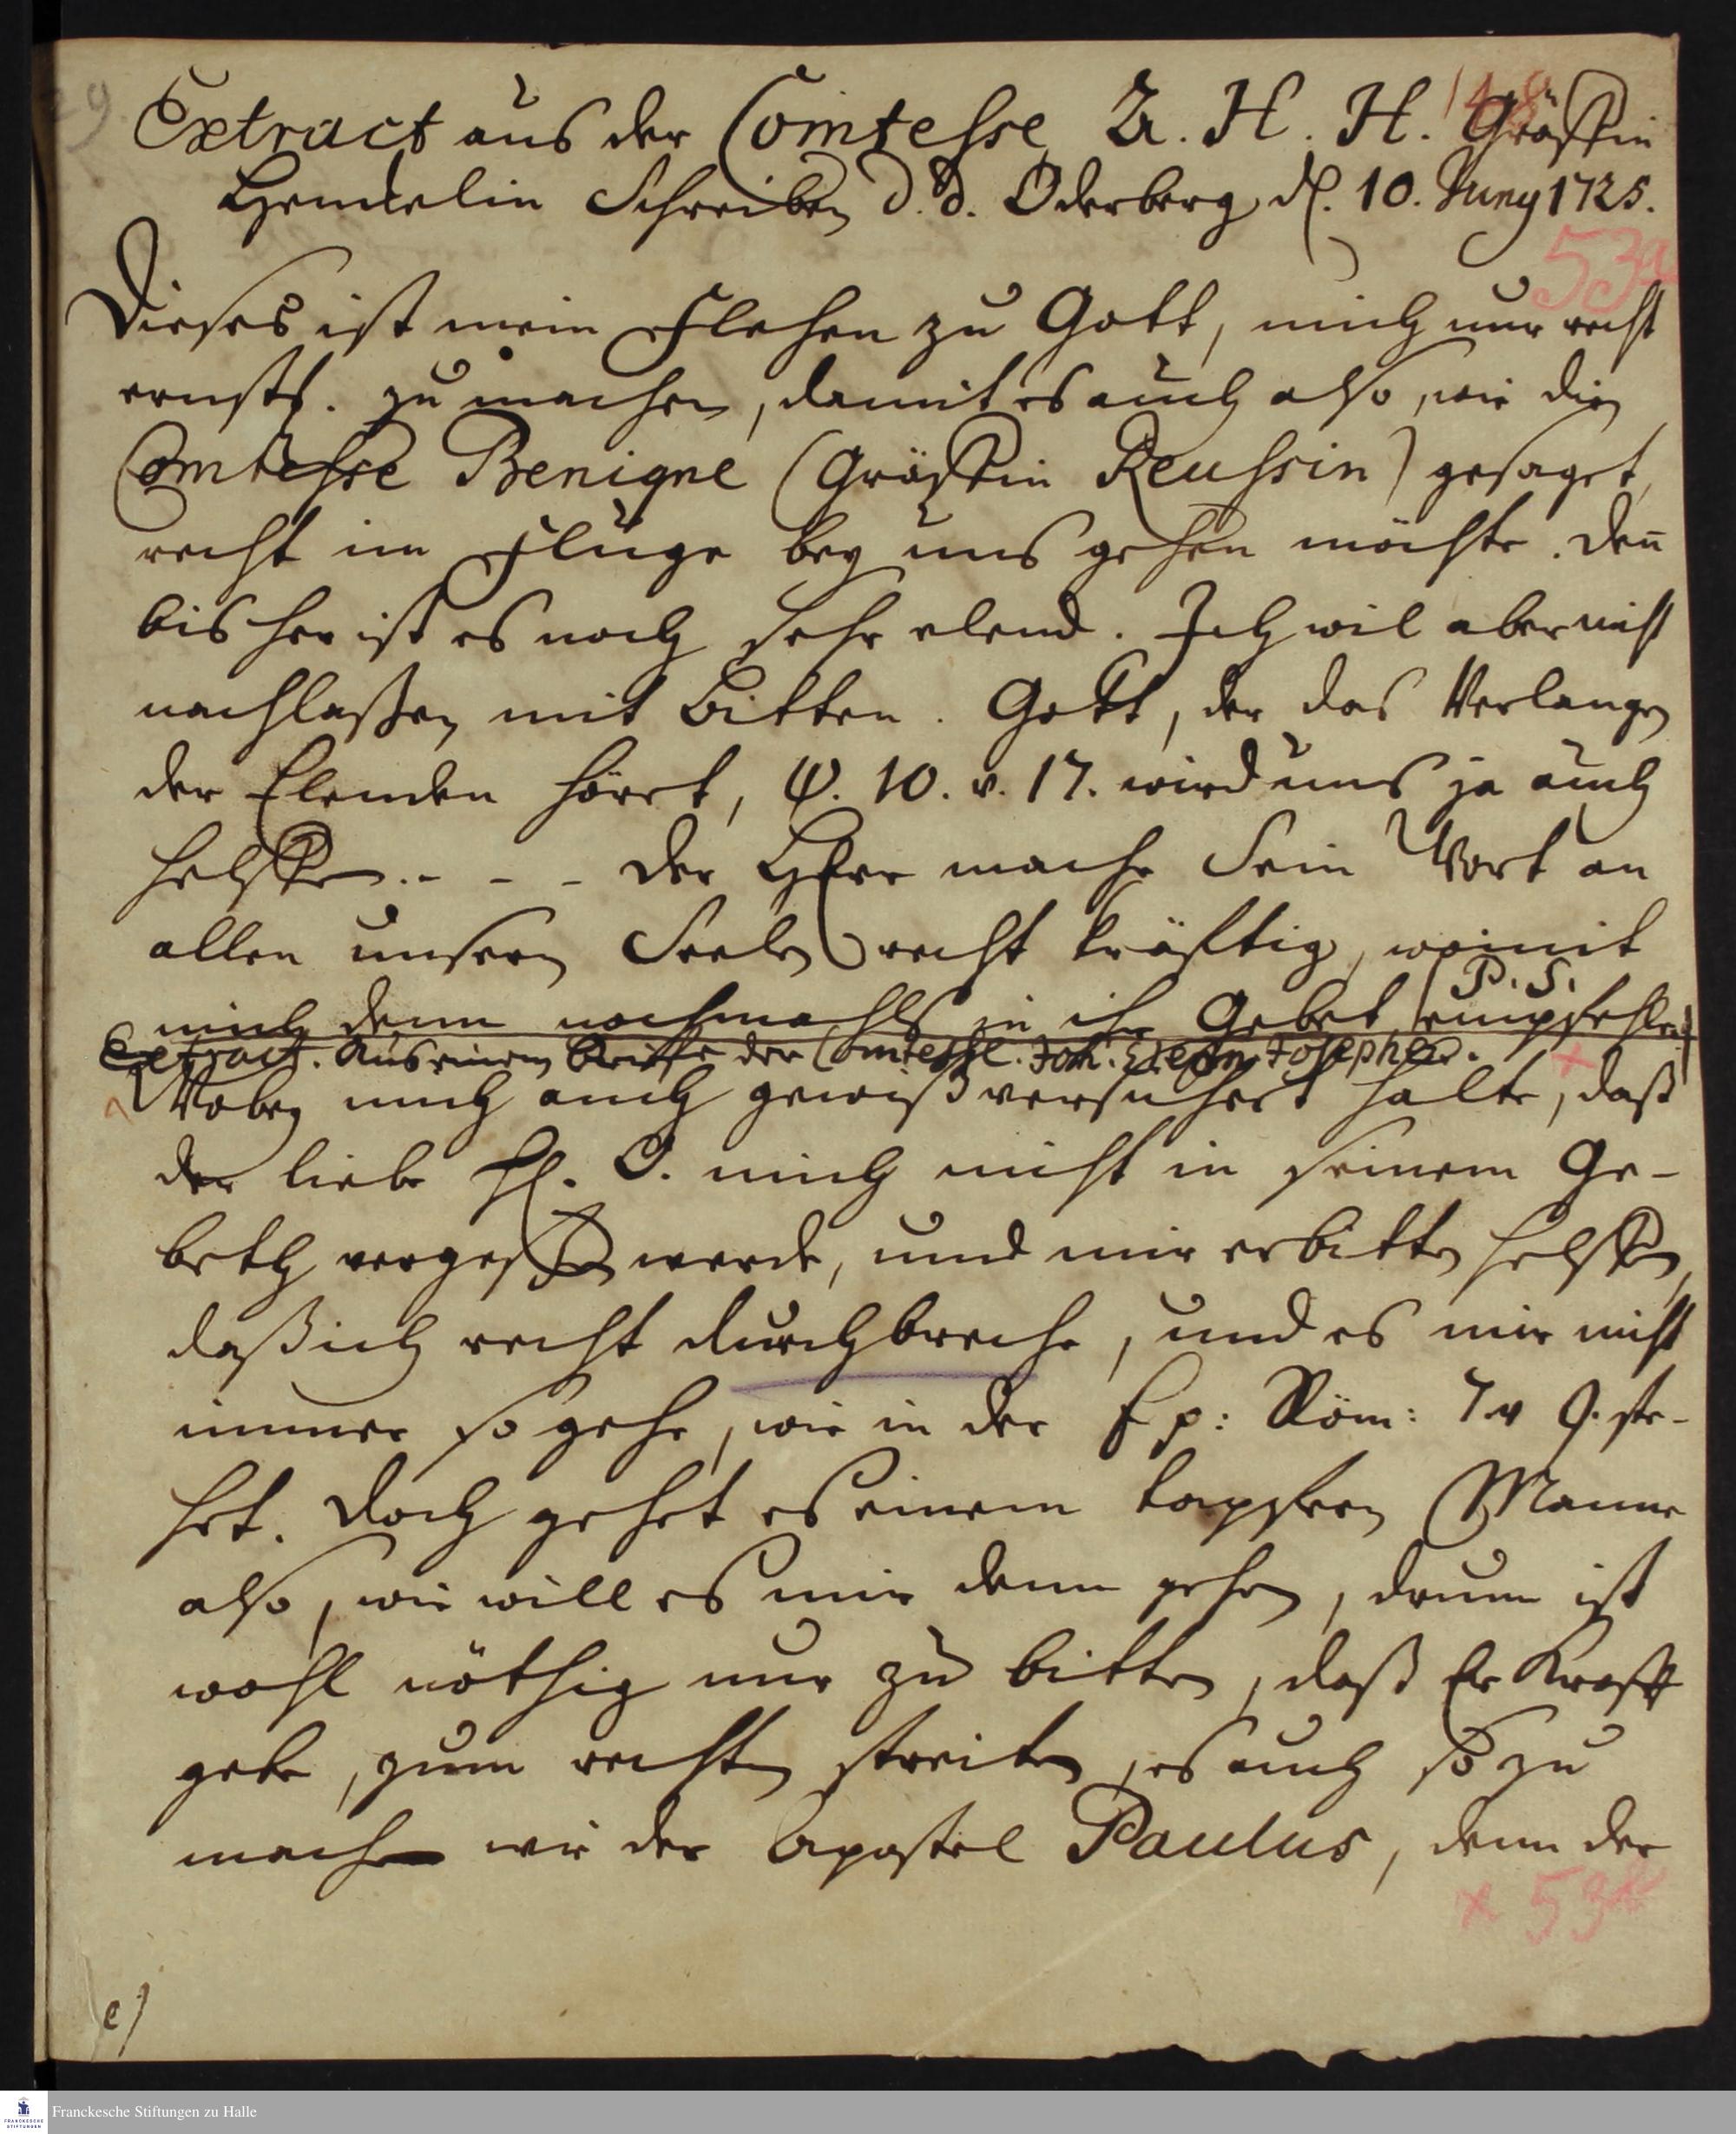 29
148
Extract aus der Comtesse U. H. H. Gräffin
Henckelin Schreiben d. d. Oderberg d. 10. Juny 1725.
53a
Dieses ist mein Flehen zu Gott, mich nur recht
ernstl. zu machen, damit es auch also, wie die
Comtesse Benigne (Gräffin Reussin) gesaget,
recht im Fluge bey uns gehen möchte. Den̅
bisher ist es noch sehr elend. Ich wil aber nicht
nachlaßen mit Bitten. Gott, der das Verlangen
der Elenden höret, ψ. 10. v. 17. wird uns ja auch
helffen. - - - Der HErr mache Sein Wort an
allen unsern Seelen recht kräftig, womit
mich denn nochmahls in ihr Gebet empfehle.
P. S.
Extract. Aus einem Briefe der Comtesse. Joh. Josepha.
Wobey mich auch gewiß versichert halte, daß
der liebe H. O. mich nicht in seinem Ge-
beth vergessen werde, und mir erbitten helffen,
daß ich recht durchbreche, und es mir nicht
immer so gehe, wie in der Ep: Röm: 7. v 9. ste-
het. Doch gehet es einem tapfern Manne
also, wie will es mir denn gehen, drum ist
wohl nöthig nur zu bitten, daß Er Krafft
gebe, zum rechten streiten, es auch so zu
machen wie der Apostel Paulus, denn der
x 53b
e)
Franckesche Stiftungen zu Halle